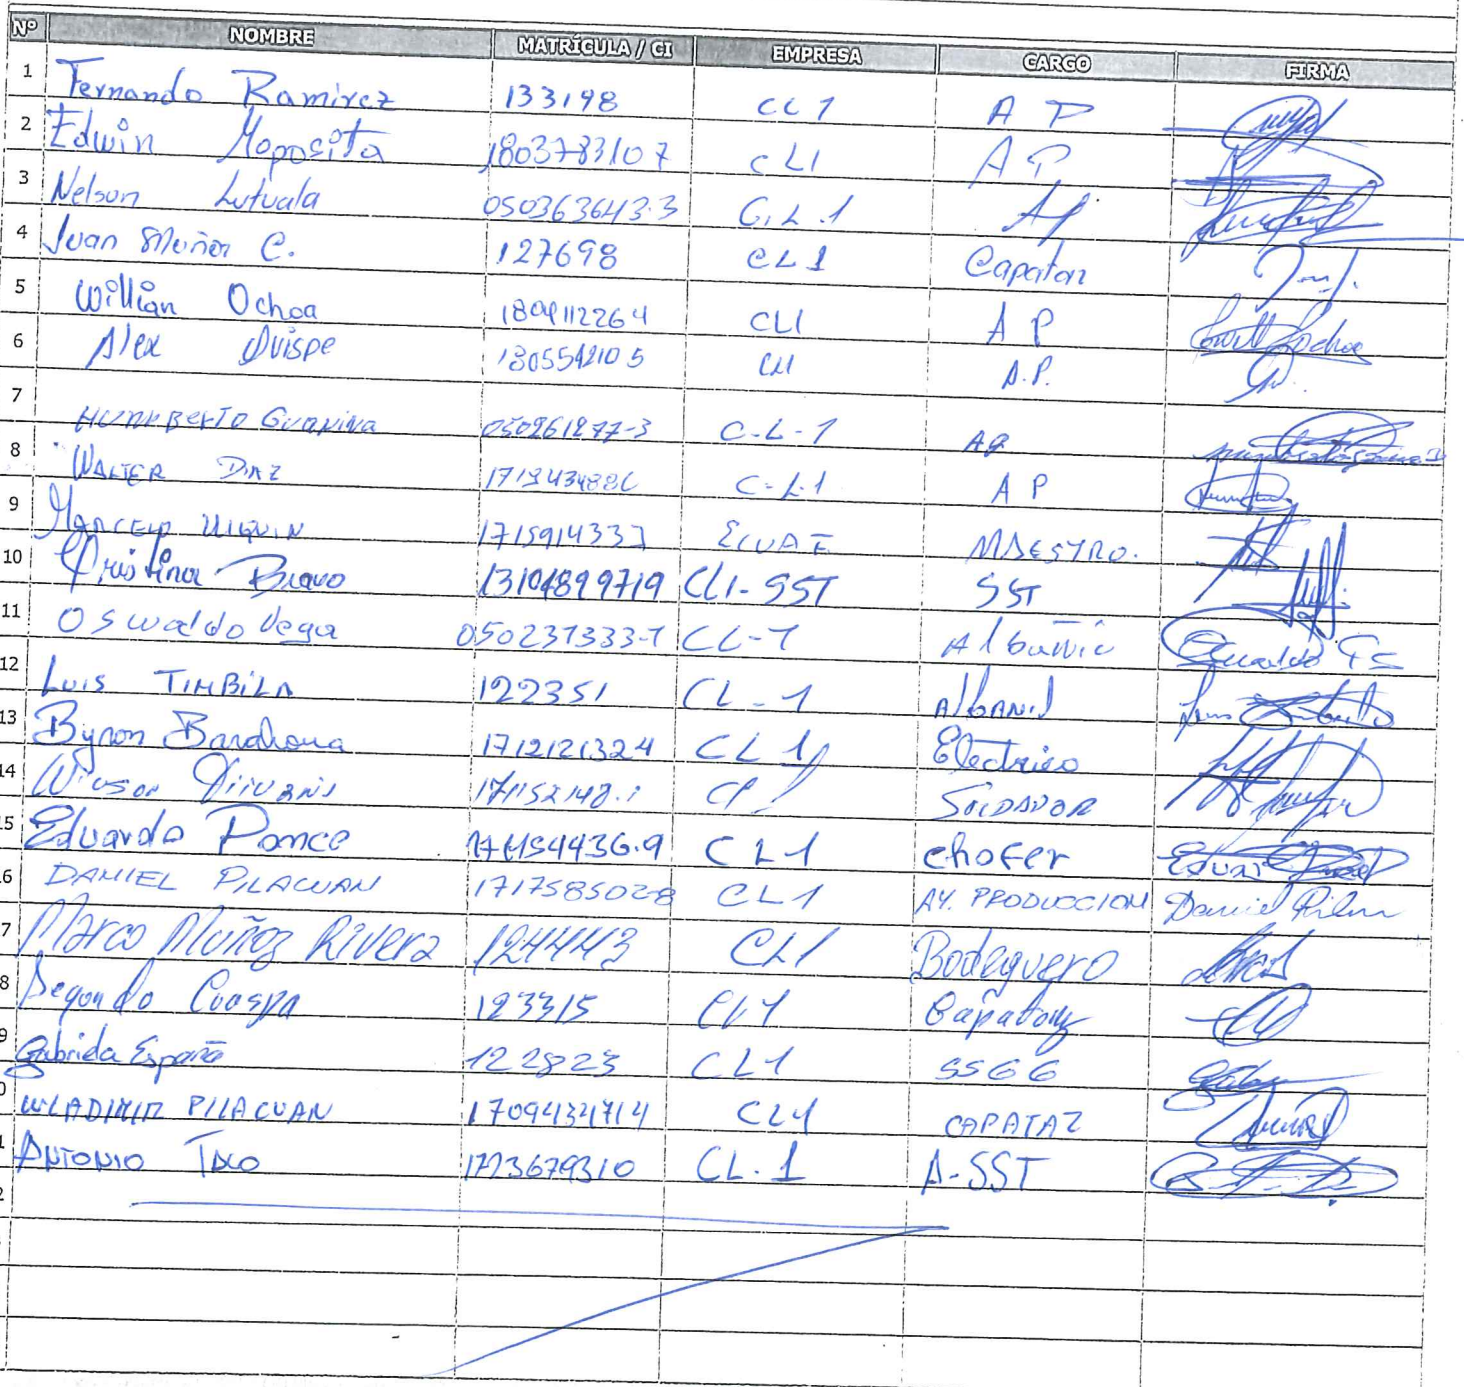 Nº NOMBRE MATRÍCULA / CI EMPRESA CARGO FIRMA
1 Fernando Ramirez 133198 CL1 A P
2 Edwin Moposita 1803783107 CL1 A P
3 Nelson Lutuala 050363643-3 C.L.1 AP
4 Juan Muñoz C. 127698 CL1 Capataz
5 Willian Ochoa 1804112264 CL1 A P
6 Alex Quispe 1805542105 CL1 A.P.
7 Humberto Guanina 050261277-3 C-L-1 AP
8 WALTER DIAZ C-L1 A P
9 MARCELO 1715914333 MAESTRO.
10 Cristina Bravo 13104899719 CL1-SST SST
11 Oswaldo Vega 050237333-1 CL-1 Albañil
12 LUIS TIMBILA 122351 CL-1 AlbaNil
13 Byron Barahona 1712121324 CL1 Electrico
14 171152148-1 SOLDADOR
15 Eduardo Ponce 171154436-9 CL1 chofer
16 DANIEL PILACUAN 1717585028 CL1 AY. PRODUCCION Daniel Pilan
7 Marco Muñoz Rivera 124443 CL1 Bodeguero
8 Segundo Cuaspa 123315 CL1 Capataz
9 Gabriela España 122823 CL1 SSGG
0 WLADIMIR PILACUAN 1709434714 CL1 CAPATAZ
1 ANTONIO TACO 1723679310 CL.1 A-SST
2